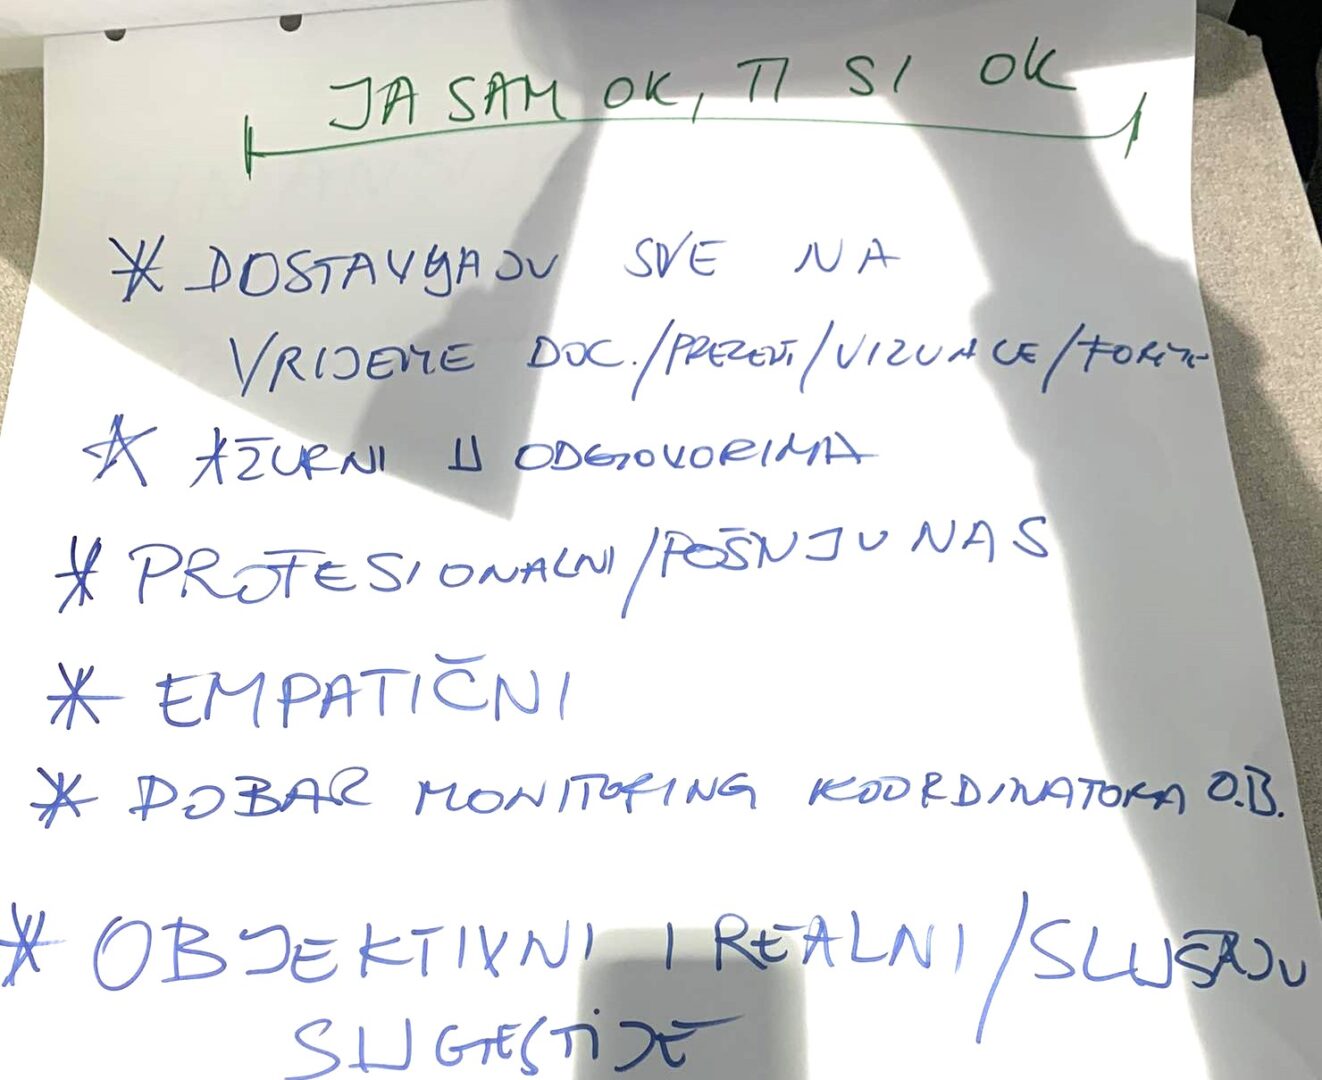 JA SAM OK, TI SI OK
* DOSTAVLJAJU SVE NA
VRIJEME DOC./PREZENT/VIZUALCE/FORM
* AŽURNI U ODGOVORIMA
* PROFESIONALNI/POŠNJU NAS
* EMPATIČNI
* DOBAR MONITORING KOORDINATORA O.B.
* OBJEKTIVNI I REALNI/SLUŠAJU
SUGESTIJE